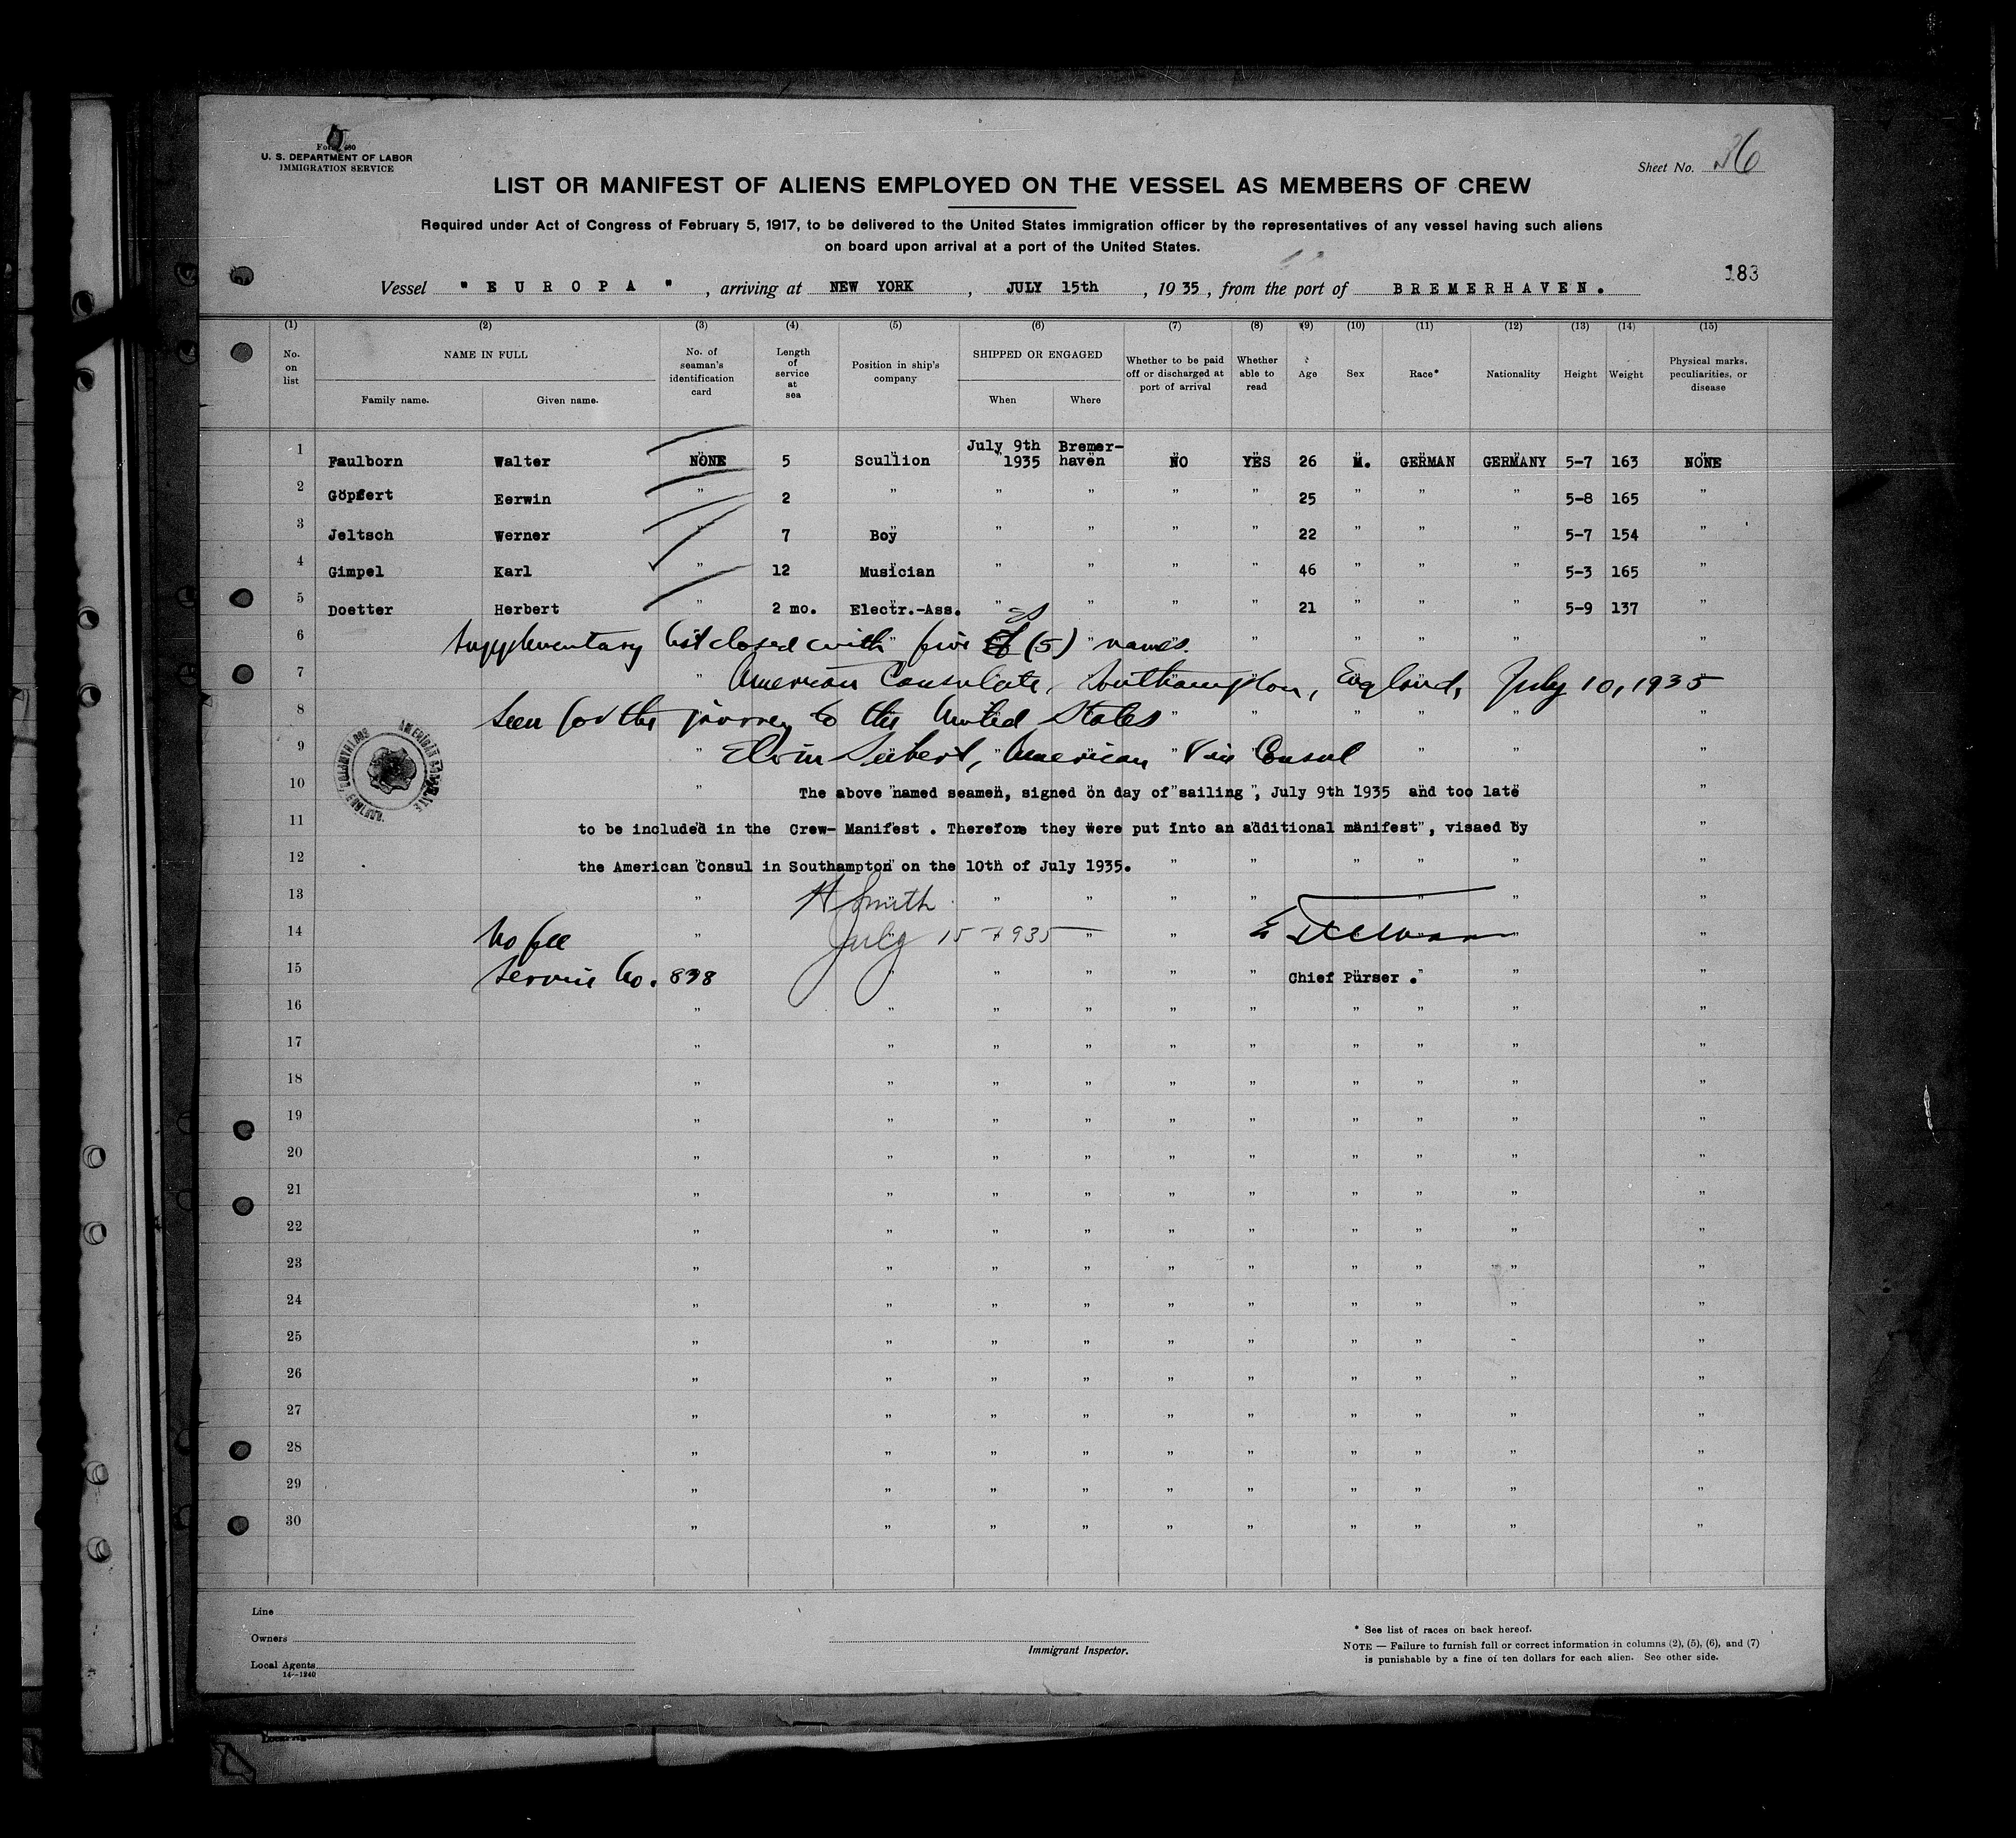 U. S. DEPARTMENT OF LABOR
IMMIGRATION SERVICE
Sheet No. 26
LIST OR MANIFEST OF ALIENS EMPLOYED ON THE VESSEL AS MEMBERS OF CREW
Required under Act of Congress of February 5, 1917, to be delivered to the United States immigration officer by the representatives of any vessel having such aliens
on board upon arrival at a port of the United States.
183
Vessel "EUROPA", arriving at NEW YORK, JULY 15th, 1935, from the port of BREMERHAVEN.
(1) (2) (3) (4) (5) (6) (7) (8) (9) (10) (11) (12) (13) (14) (15)
No. on list NAME IN FULL Family name. Given name. No. of seaman's identification card Length of service at sea Position in ship's company SHIPPED OR ENGAGED When Where Whether to be paid off or discharged at port of arrival Whether able to read Age Sex Race* Nationality Height Weight Physical marks, peculiarities, or disease
1 Faulborn Walter NONE 5 Scullion July 9th 1935 Bremer-haven NO YES 26 M. GERMAN GERMANY 5-7 163 NONE
2 Göpfert Eerwin " 2 " " " " " 25 " " " 5-8 165 "
3 Jeltsch Werner " 7 Boy " " " " 22 " " " 5-7 154 "
4 Gimpel Karl " 12 Musician " " " " 46 " " " 5-3 165 "
5 Doetter Herbert " 2 mo. Electr.-Ass. " " " " 21 " " " 5-9 137 "
6 Supplementary list closed with five (5) names.
7 American Consulate, Southampton, England, July 10, 1935
8 Seen for the journey to the United States
9 Elvin Seibert, American Vice Consul
10 The above named seamen, signed on day of sailing, July 9th 1935 and too late
11 to be included in the Crew- Manifest . Therefore they were put into an additional manifest, visaed by
12 the American Consul in Southampton on the 10th of July 1935.
13 H Smith
14 No fee July 15 1935
15 Service No. 838 Chief Purser .
16
17
18
19
20
21
22
23
24
25
26
27
28
29
30
Line
Owners
Local Agents
14—1240
Immigrant Inspector.
* See list of races on back hereof.
NOTE — Failure to furnish full or correct information in columns (2), (5), (6), and (7)
is punishable by a fine of ten dollars for each alien. See other side.